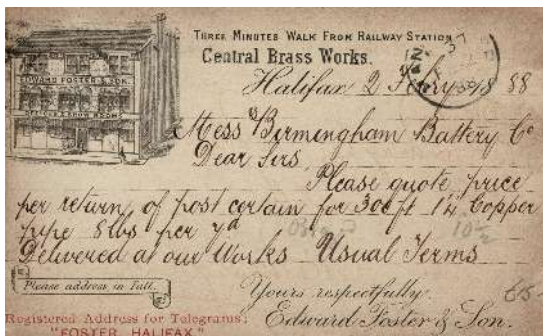 THREE MINUTES WALK FROM RAILWAY STATION
Central Brass Works.
EDWARD FOSTER & SON
Halifax 2 Febry 1888
Mess Birmingham Battery Co
Dear Sirs
Please quote price
per return of post certain for 300 ft 1¼ Copper
pipe 8 lbs per yd
10½
Delivered at our Works Usual Terms
Please address in Full.
Yours respectfully
Registered Address for Telegrams:
Edward Foster & Son.
"FOSTER, HALIFAX."